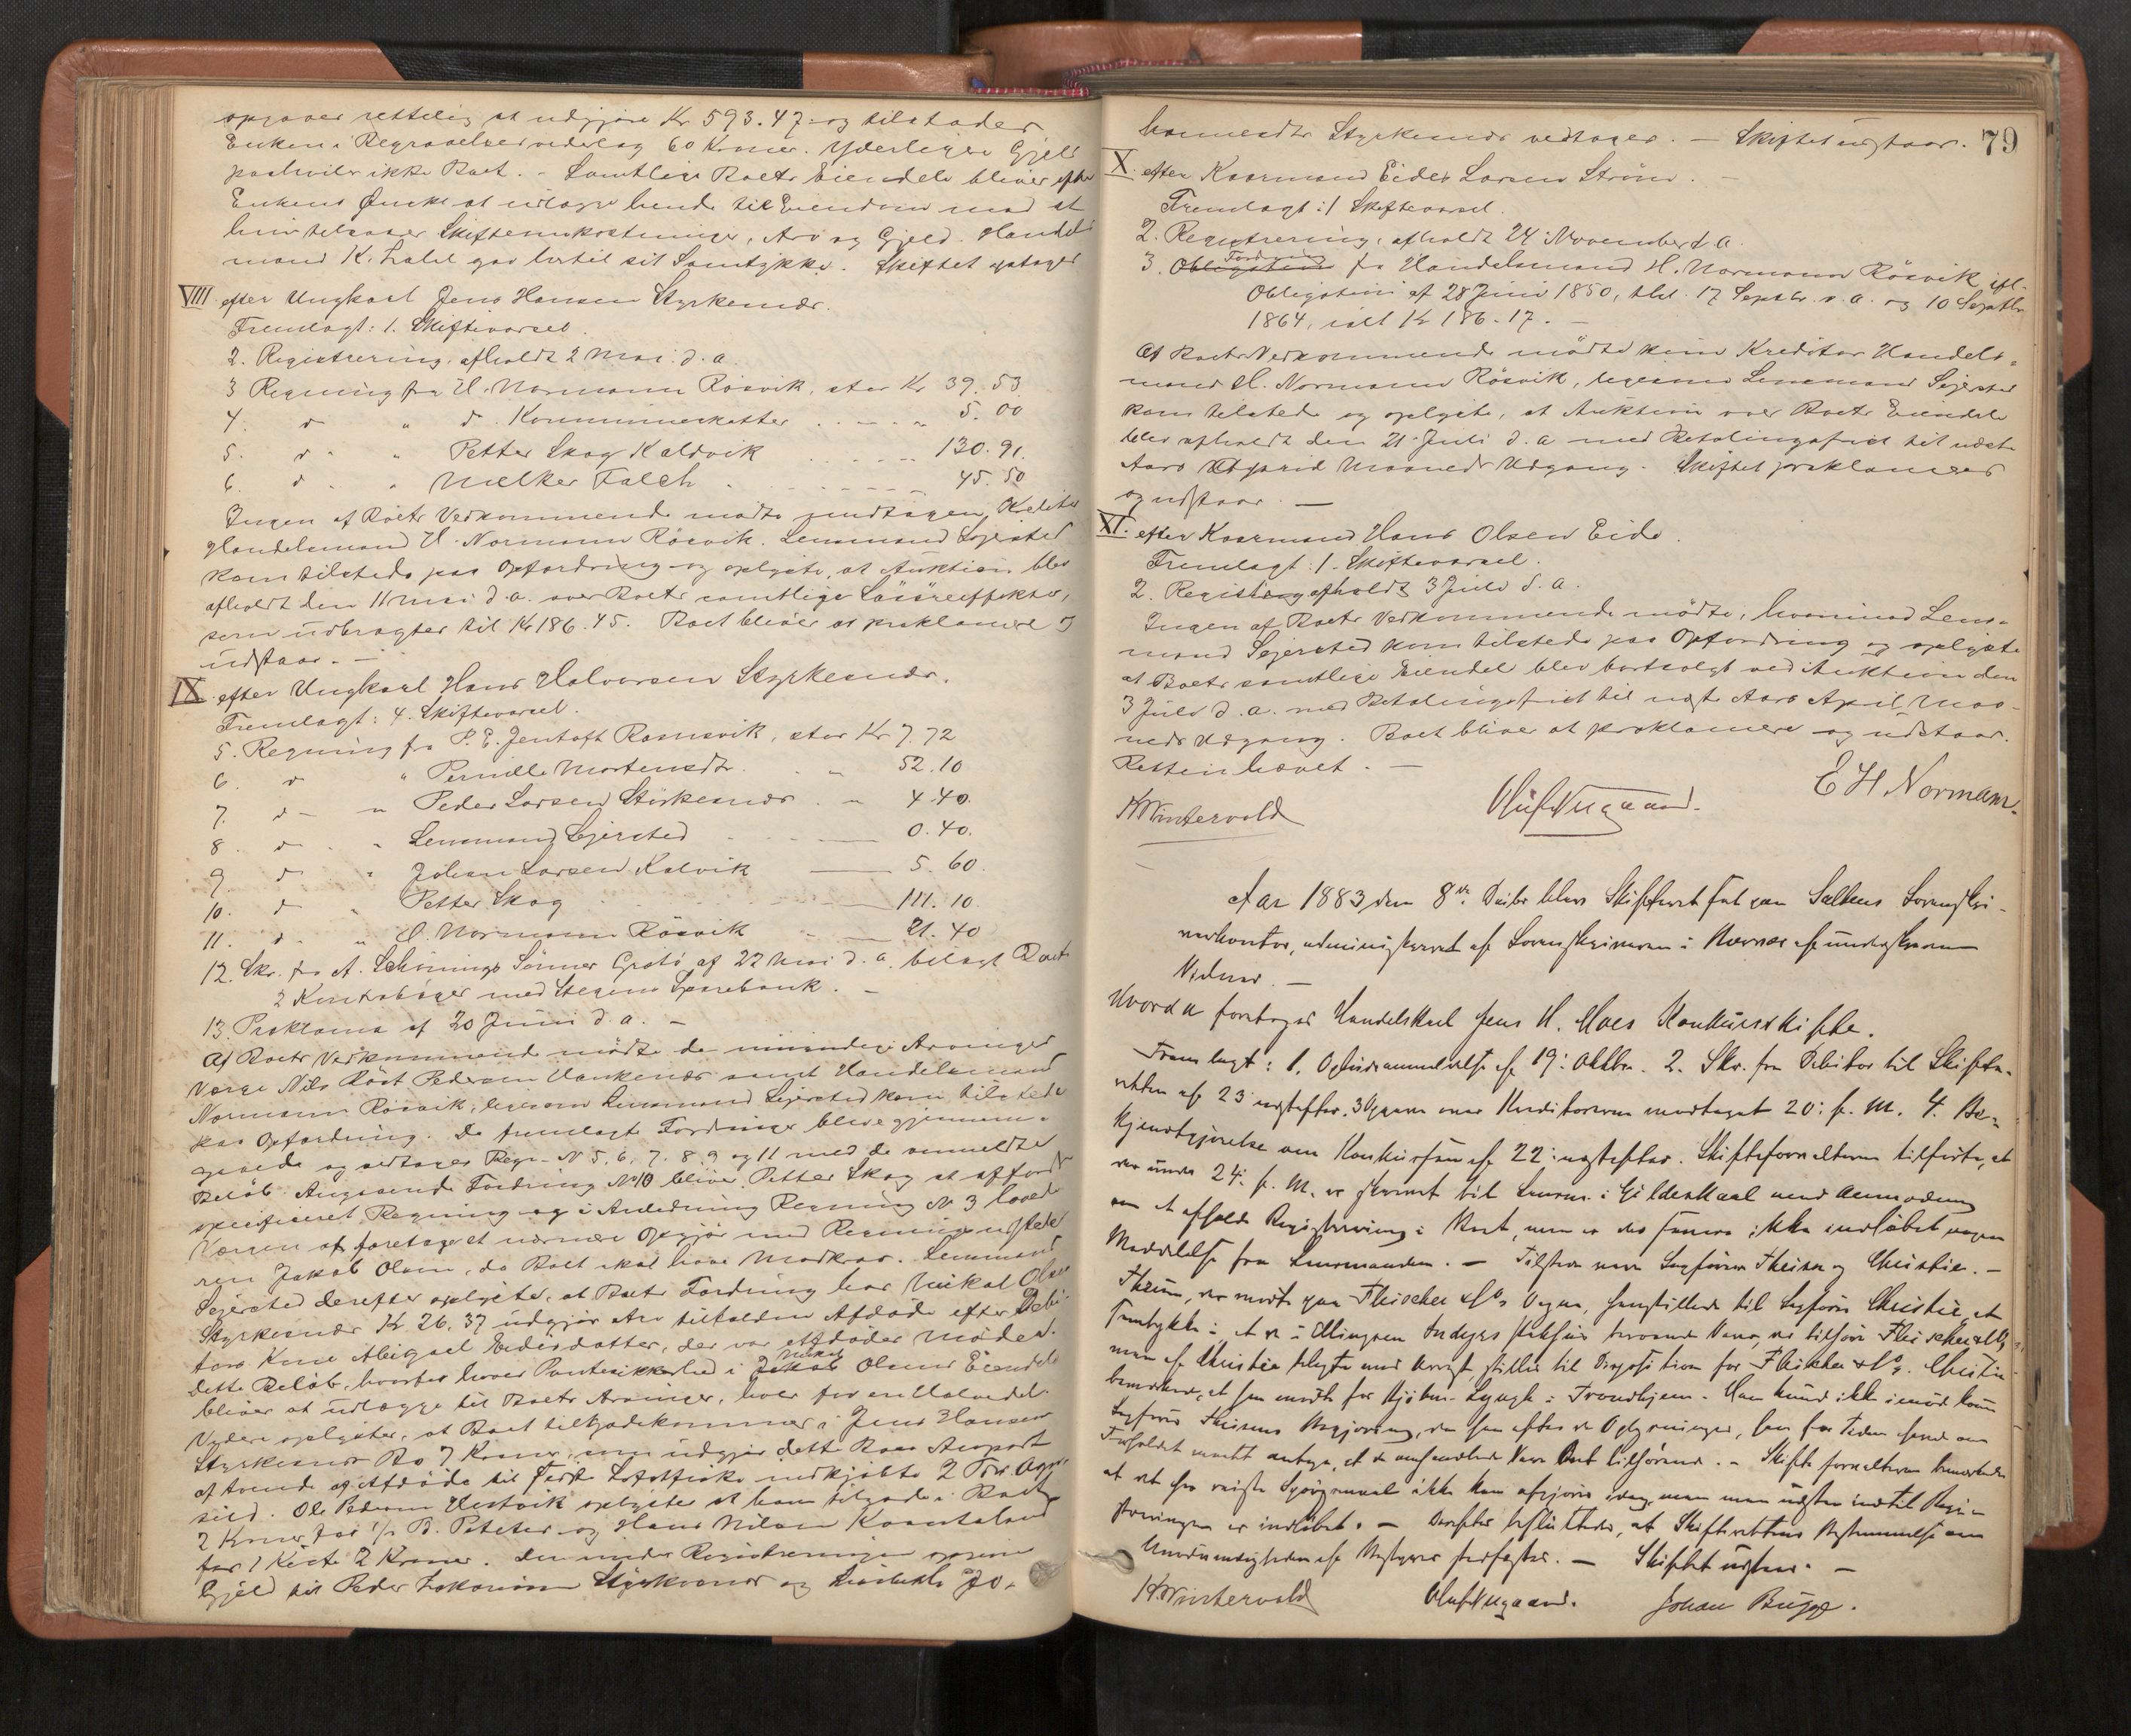 opgaves rettelig at udgjøre Kr 593.47 og tilstodes
Enken i Begravelsesvederlag 60 Kroner. Yderligere Gjeld
paahviler ikke Boet. - Samtlige Boets Eiendele bliver efter
Enkens Ønske at udlægge hende til Eiendom mod at
hun tilsvarer Skifteomkostninger, Arv og Gjeld. Handels
mand K. gav hertil sit Samtykke. Skiftet optages
VIII efter Ungkarl Jens Hansen Styrkesnæs.
Fremlagt: 1. Skiftevarsel.
2. Registrering, afholdt 2 Mai d. a.
3 Regning fra H. Normann Rösvik, stor Kr 39.53.
4. d " d. Kommuneskatter . . . " 5.00
5. d " " Petter Skog Kaldvik . . . 130.91.
6. d " " Melker Falch . . . 45.50
Ingen af Boets Vedkommende mødte undtagen Kreditor
Handelsmand H. Normann Rösvik. Lensmand Sejersted
kom tilstede paa Opfordring og oplyste, at Auktion blev
afholdt den 11 Mai d. a. over Boets samtlige Løsøreeffekter,
som udbragtes til Kr 186.45. Boet bliver at proklamere og
udstaar. —
IX efter Ungkarl Hans Halvorsen Styrkesnæs.
Fremlagt: 4. Skiftevarsel.
5. Regning fra P. E. Jentoft Ramsvik, stor Kr 7.72
6. d " Pernille Mortensdtr. . " 52.10
7. d - " Peder Larsen Störkesnæs . " 4.40.
8. d . " Lensmand Sejersted — 0.40.
9. d . " Johan Larsen Kalvik — 5.60.
10. d " Petter Skog — 111.10.
11. d. " H. Normann Rösvik — 21.40
12. Skr. fra A. Schönings Sönner Grötö af 22 Mai d. a. bilagt Boets
2 Kontrabøger med Stegens Sparebank. —
13. Proklama af 20 Juni d. a. —
Af Boets Vedkommende mødte de umyndige Arvingers
Værge Nils Röst Pedersen samt Handelsmand
Normann Rösvik, ligesom Lensmand Sejersted kom tilstede
paa Opfordring. De fremlagte Fordringer bleve gjennem-
gaaede og vedtages Regn. N 5, 6, 7, 8, 9 og 11 med de anmeldte
Beløb. Angaaende Fordring N 10 bliver Petter Skog at affordre
specificeret Regning og i Anledning Regning N 3 lovede
Værgen at foretage et nærmere Opgjør med Regningsudstede
ren Jakob Olsen, da Boet skal have Modkrav. Lensmand
Sejersted derefter oplyste, at Boets Fordring hos Mikal Olsen
Styrkesnæs Kr 26.37 udgjør Arv tilfalden Afdøde efter Debi-
tors Kone Abigael Endresdatter, der var Afdødes Moder.
Dette Beløb, hvorfor haves Pantesikkerhed i Jakob Mikal Olsens Eiendele
bliver at udlægge til Boets Arvinger, hver for en Halvedel.
Videre oplystes, at Boet tilgodekommer i Jens Hansen
Styrkesnæs Bo 7 Kroner, som udgjør dette Boes Anpart
af tvende af Afdøde til sidste Lofotfiske indkjøbte 2 Tdr. Agn-
sild. Ole Pedersen Hestvik oplystes at have tilgode i Boet
2 Kroner for 1/2 T. Poteter og Hans Nilsen
for 1 Kiste 2 Kroner. Den under Registreringen opgivne
Gjeld til Peder Zakariasen Styrkesnæs og Jo-
79
hannesdtr Styrkesnæs vedtages. — Skiftet udstaar.
X. efter Kaarmand Eider Larsen Ström. —
Fremlagt: 1 Skiftevarsel.
2. Registrering, afholdt 24 November f. a.
3. Obligation Fordring fra Handelsmand H. Normann Rösvik ifl.
Obligation af 28 Juni 1850, thl. 17 Septbr. s. a. og 10 Septbr
1864, ialt Kr 186.17. —
Af Boets Vedkommende mødte kun Kreditor Handels-
mand H. Normann Rösvik, ligesom Lensmand Sejersted
kom tilstede og oplyste, at Auktion over Boets Eiendele
blev afholdt den 21 Juli d. a. med Betalingsfrist til næste
Aars April Maaneds Udgang. Skiftet proklameres
og udstaar. —
XI. efter Kaarmand Hans Olsen Eide.
Fremlagt: 1. Skiftevarsel.
2. Registrering afholdt 3 Juli d. a.
Ingen af Boets Vedkommende mødte, hvorimod Lens-
mand Sejersted kom tilstede paa Opfordring og oplyste
at Boets samtlige Eiendele blev bortsolgt ved Auktion den
3 Juli d. a. med Betalingsfrist til næste Aars April Maa-
neds Udgang. Boet bliver at proklamere og udstaar.
Retten hævet. —
H Wintervold Oluf Nygaard. E H Normann.
Aar 1883 den 8de Decbr blev Skifteret sat paa Saltens Sorenskri-
verkontor, administreret af Sorenskriveren i Overvær af undertegnede
Vidner. —
Hvorda foretoges Handelskarl Jens H. Moes Konkursskifte.
Fremlagt: 1. Opbudsanmeldelse af 19. Oktbr. 2. Skr. fra Debitor til Skifte-
retten af 23 næstefter. 3 Opgave over Kreditorerne modtaget 20. f. M. 4. Be-
kjendtgjørelse om Konkursen af 22. næstefter. Skifteforvalteren tilførte, at
der under 24. f. M. er skrevet til Lensm. i Gildeskaal med Anmodning
om at afholde Registrering i Boet, men er der senere ikke indløbet nogen
Meddelelse fra Lensmanden. — Tilstede var Sagfører Theisen og Christie. —
Theisen, der mødte paa Fleischer & Co's Vegne, henstillede til Sagfører Christie, at
samtykke i, at de i
af Christie stilles til Disposition for Fleischer & Co. Christie
bemærkede, at han mødte for Kjøbm. Lyngh i Trondhjem. Han kunde ikke imødekomme
Sagfører Theisens Begjæring, da han efter de Oplysninger, han for Tiden havde om
Forholdet maatte antage, at de omhandlede Varer Boet tilhørende. — Skifteforvalteren bemærkede
at det her reiste Spørgsmaal ikke kan afgjøres idag, men man udsætter indtil Regi-
streringen er indløbet. — Derefter besluttedes, at Skifterettens Bestemmelse om
Unødvendigheden af Bestyrer stadfæstes. — Skiftet udstaar. —
H Wintervold Oluf Nygaard. Johan Bugge.